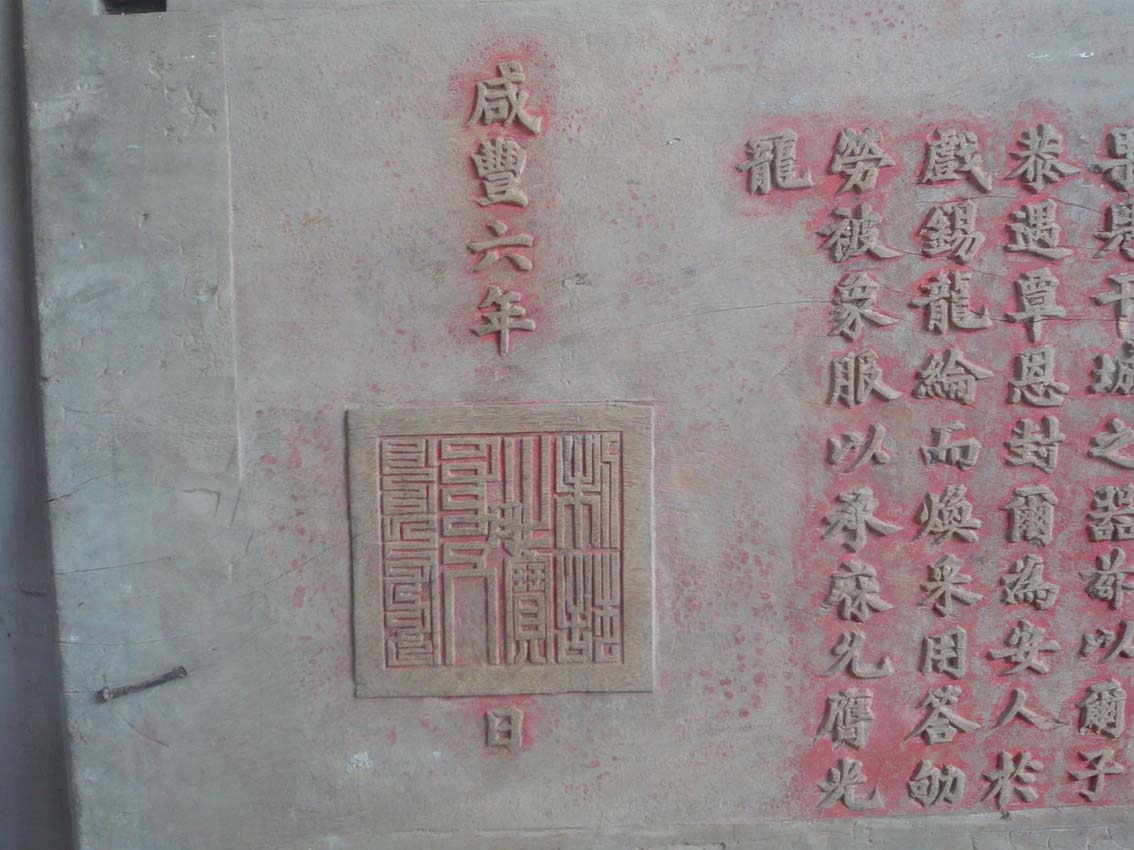 干城之器茲以爾子
恭遇覃恩封爾為安人於
戲錫龍綸而煥采用答劬
勞被象服以承庥允膺光
寵
咸豐六年
制誥之寶
日